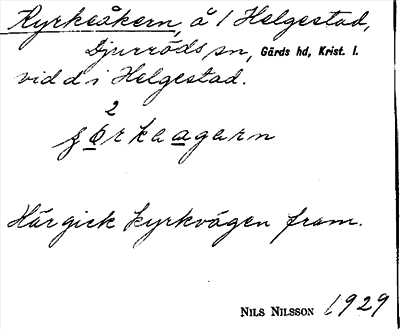 Kyrkeåkern, å 1 Helgestad,
Djurröds sn, Gärds hd, Krist. l.
vid d i Helgestad.
2
Här gick kyrkvägen fram.
NILS NILSSON 1929